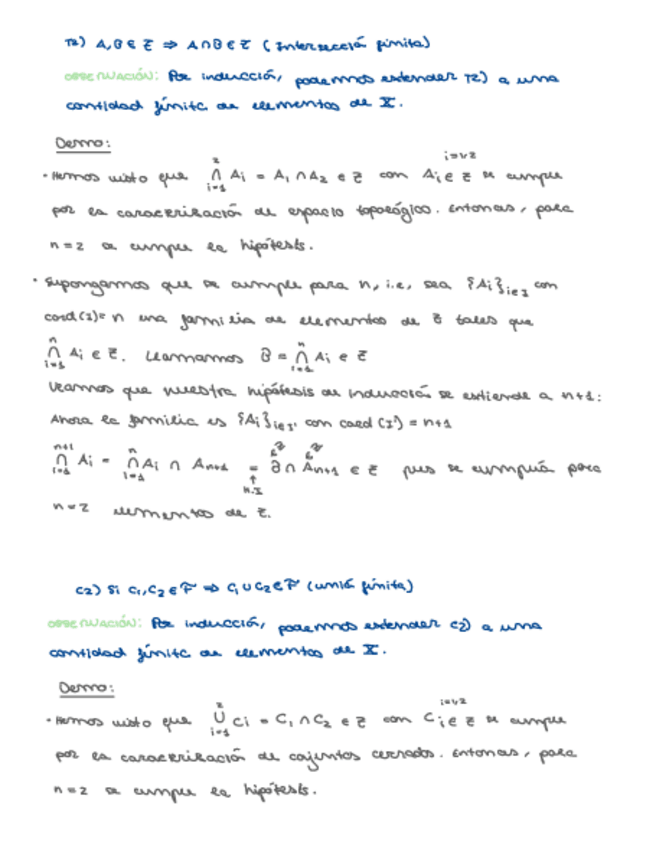 T2) A, B ∈ τ ⇒ A ∩ B ∈ τ (Intersección finita)
OBSERVACIÓN: Por inducción, podemos extender T2) a una
cantidad finita de elementos de X.
Demo:
• Hemos visto que ⋂_{i=1}^{2} A_i = A_1 ∩ A_2 ∈ τ con A_i ∈ τ i=1,2 se cumple
por la caracterización de espacio topológico. Entonces, para
n=2 se cumple la hipótesis.
• Supongamos que se cumple para n, i.e, sea {A_i}_{i∈I} con
card(I)=n una familia de elementos de τ tales que
⋂_{i=1}^{n} A_i ∈ τ. Llamamos B = ⋂_{i=1}^{n} A_i ∈ τ
Veamos que nuestra hipótesis de inducción se extiende a n+1:
Ahora la familia es {A_i}_{i∈I'} con card(I') = n+1
⋂_{i=1}^{n+1} A_i = ⋂_{i=1}^{n} A_i ∩ A_{n+1} = B ∩ A_{n+1} ∈ τ pues se cumplía para
H.I
n=2 elementos de τ.
C2) Si C_1, C_2 ∈ F ⇒ C_1 ∪ C_2 ∈ F (unión finita)
OBSERVACIÓN: Por inducción, podemos extender C2) a una
cantidad finita de elementos de X.
Demo:
• Hemos visto que ⋃_{i=1}^{2} C_i = C_1 ∩ C_2 ∈ τ con C_i ∈ τ i=1,2 se cumple
por la caracterización de cojuntos cerrados. Entonces, para
n=2 se cumple la hipótesis.